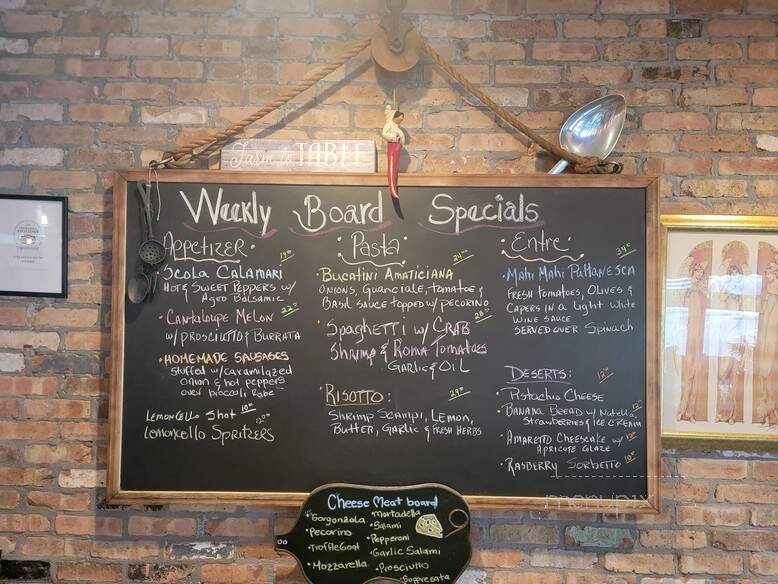 Farm to TABLE
Weekly Board Specials
Appetizer
Scola Calamari
Hot & Sweet Peppers w/
Aged Balsamic
Cantaloupe Melon 22
w/ Prosciutto & Burrata
Homemade Sausages
Stuffed w/ Caramilazed
Onion & hot peppers
over broccoli Rabe
Lemoncello Shot 10.00
Lemoncello Spritzers 12.00
Pasta
Bucatini Amaticiana 24
Onions, Guanciale, tomato &
Basil sauce topped w/ pecorino
Spaghetti w/ Crab 28
Shrimp & Roma Tomatoes
Garlic & Oil
Risotto: 29
Shrimp Scampi, Lemon,
Butter, Garlic & Fresh Herbs
Entre
Mahi Mahi Puttanesca 34
Fresh Tomatoes, Olives &
Capers in a Light white
wine sauce
served over Spinach
Deserts:
Pistachio Cheese 12
Banana Bread w/ Nutella, 12
Strawberries & ice cream
Amaretto Cheescake w/ 12
Apricote Glaze
Rasberry Sorbetto 10
menupix
Cheese Meat board
Gorgonzola
Pecorino
Truffle Goat
Mozzarella
Mortadella
Salami
Pepperoni
Garlic Salami
Prosciutto
Sopresata